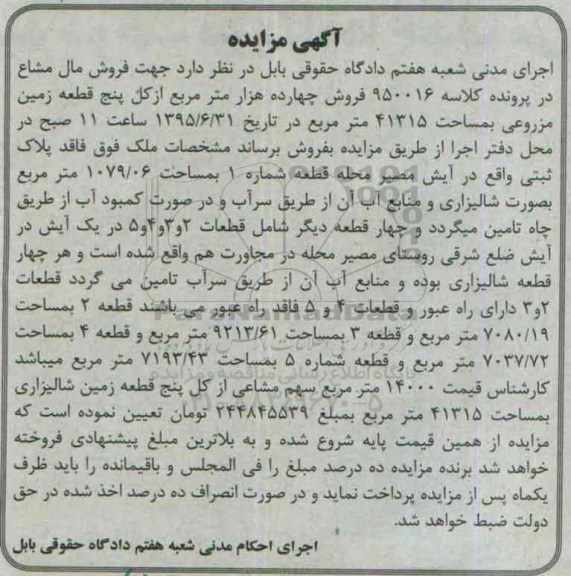 آگهی مزایده
اجرای مدنی شعبه هفتم دادگاه حقوقی بابل در نظر دارد جهت فروش مال مشاع
در پرونده کلاسه ۹۵۰۰۱۶ فروش چهارده هزار متر مربع ازکل پنج قطعه زمین
مزروعی بمساحت ۴۱۳۱۵ متر مربع در تاریخ ۱۳۹۵/۶/۳۱ ساعت ۱۱ صبح در
محل دفتر اجرا از طریق مزایده بفروش برساند مشخصات ملک فوق فاقد پلاک
ثبتی واقع در آیش مصیر محله قطعه شماره ۱ بمساحت ۱۰۷۹/۰۶ متر مربع
بصورت شالیزاری و منابع آب آن از طریق سرآب و در صورت کمبود آب از طریق
چاه تامین میگردد و چهار قطعه دیگر شامل قطعات ۲و۳و۴و۵ در یک آیش در
آیش ضلع شرقی روستای مصیر محله در مجاورت هم واقع شده است و هر چهار
قطعه شالیزاری بوده و منابع آب آن از طریق سرآب تامین می گردد قطعات
۲و۳ دارای راه عبور و قطعات ۴ و ۵ فاقد راه عبور می باشند قطعه ۲ بمساحت
۷۰۸۰/۱۹ متر مربع و قطعه ۳ بمساحت ۹۲۱۳/۶۱ متر مربع و قطعه ۴ بمساحت
۷۰۳۷/۷۲ متر مربع و قطعه شماره ۵ بمساحت ۷۱۹۳/۴۳ متر مربع میباشد
کارشناس قیمت ۱۴۰۰۰ متر مربع سهم مشاعی از کل پنج قطعه زمین شالیزاری
بمساحت ۴۱۳۱۵ متر مربع بمبلغ ۲۴۴۸۴۵۵۳۹ تومان تعیین نموده است که
مزایده از همین قیمت پایه شروع شده و به بلاترین مبلغ پیشنهادی فروخته
خواهد شد برنده مزایده ده درصد مبلغ را فی المجلس و باقیمانده را باید ظرف
یکماه پس از مزایده پرداخت نماید و در صورت انصراف ده درصد اخذ شده در حق
دولت ضبط خواهد شد.
اجرای احکام مدنی شعبه هفتم دادگاه حقوقی بابل